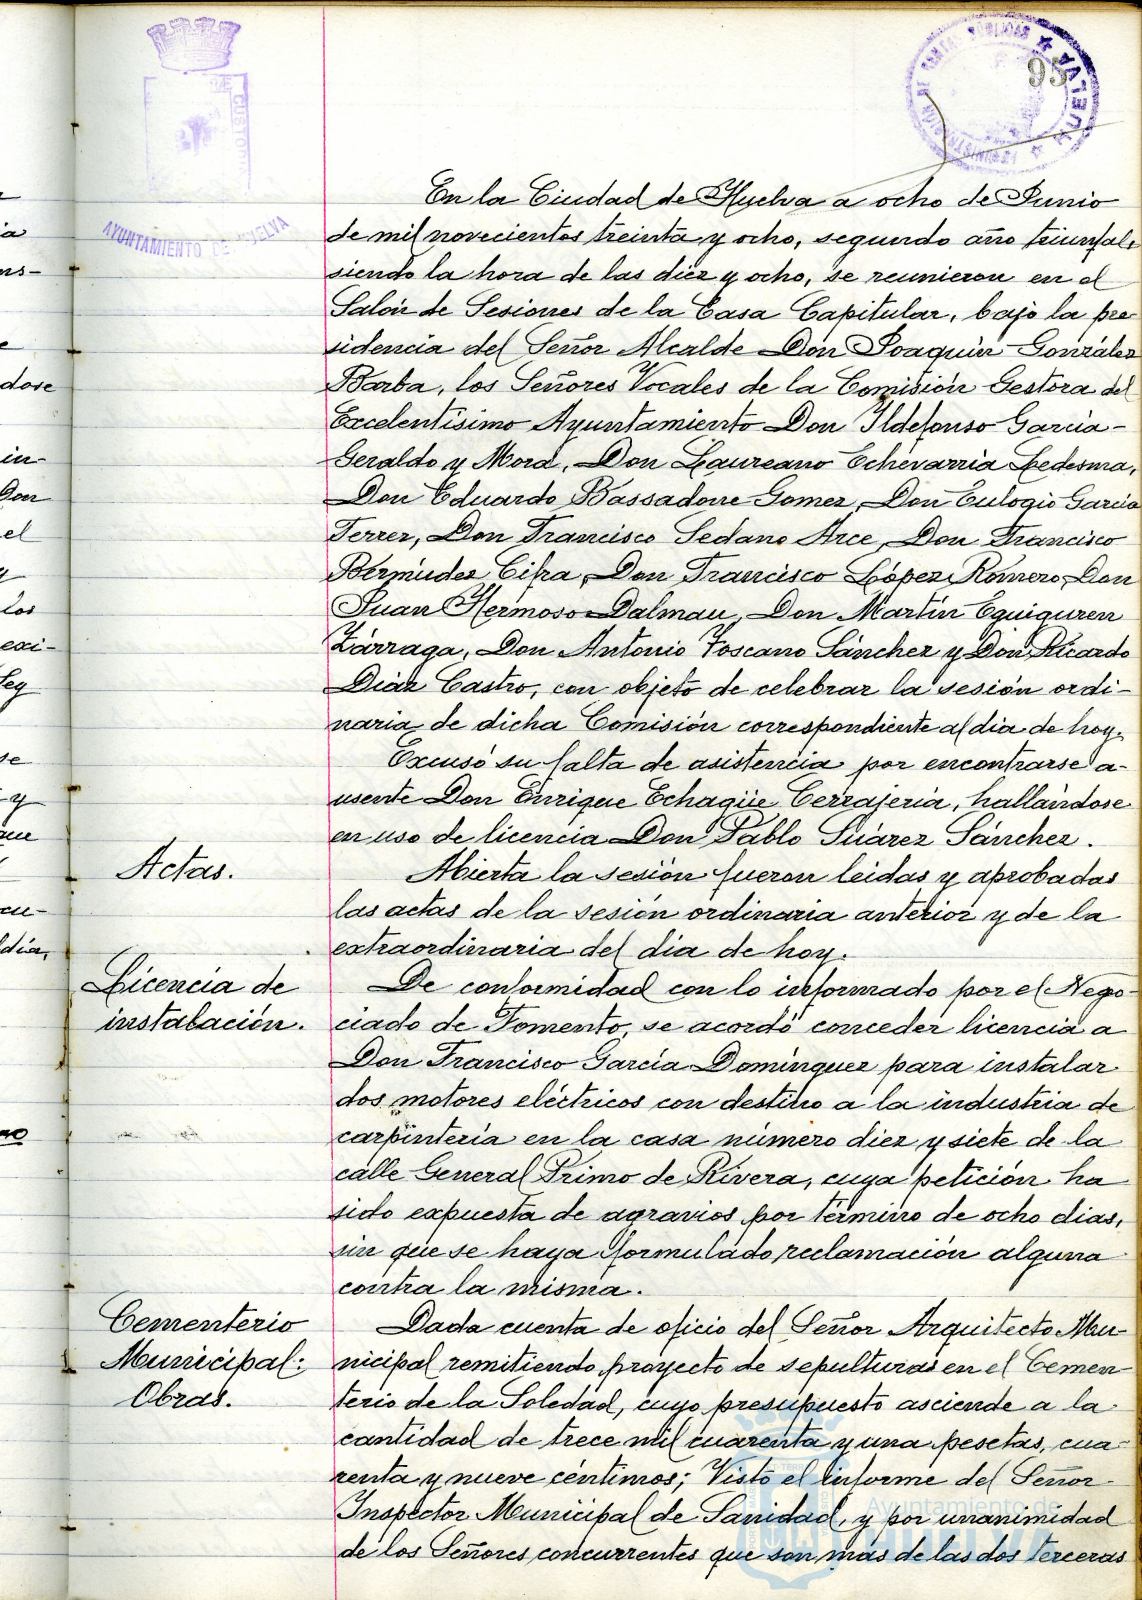 95
AYUNTAMIENTO DE HUELVA
HUELVA
En la Ciudad de Huelva a ocho de Junio
de mil novecientos treinta y ocho, segundo año triunfal,
siendo la hora de las diez y ocho, se reunieron en el
Salón de Sesiones de la Casa Capitular, bajo la pre
sidencia del Señor Alcalde Don Joaquín González
Barba, los Señores Vocales de la Comisión Gestora del
Excelentísimo Ayuntamiento Don Ildefonso García-
Geraldo y Mora, Don Laureano Echevarria Ledesma,
Don Eduardo Bassadone Gomez, Don Eulogio García
Ferrer, Don Francisco Sedano Arce, Don Francisco
Bermudez Cifra, Don Francisco López Romero, Don
Juan Hermoso Dalmau, Don Martín Eguiguren
Zárraga, Don Antonio Toscano Sánchez y Don Ricardo
Diaz Castro, con objeto de celebrar la sesión ordi-
naria de dicha Comisión correspondiente al dia de hoy.
Excusó su falta de asistencia por encontrarse a-
usente Don Enrique Echagüe Cerrajería, hallándose
en uso de licencia Don Pablo Suárez Sánchez.
Actas.
Abierta la sesión fueron leidas y aprobadas
las actas de la sesión ordinaria anterior y de la
extraordinaria del dia de hoy.
Licencia de
instalación.
De conformidad con lo informado por el Nego-
ciado de Fomento, se acordó conceder licencia a
Don Francisco García Domínguez para instalar
dos motores eléctricos con destino a la industria de
carpintería en la casa número diez y siete de la
calle General Primo de Rivera, cuya petición ha
sido expuesta de agravios por término de ocho dias,
sin que se haya formulado reclamación alguna
contra la misma.
Cementerio
Municipal:
Obras.
Dada cuenta de oficio del Señor Arquitecto Mu-
nicipal remitiendo proyecto de sepulturas en el Cemen-
terio de la Soledad, cuyo presupuesto asciende a la
cantidad de trece mil cuarenta y una pesetas, cua-
renta y nueve céntimos; Visto el informe del Señor
Inspector Municipal de Sanidad, y por unanimidad
de los Señores concurrentes que son más de las dos terceras
Ayuntamiento de
HUELVA